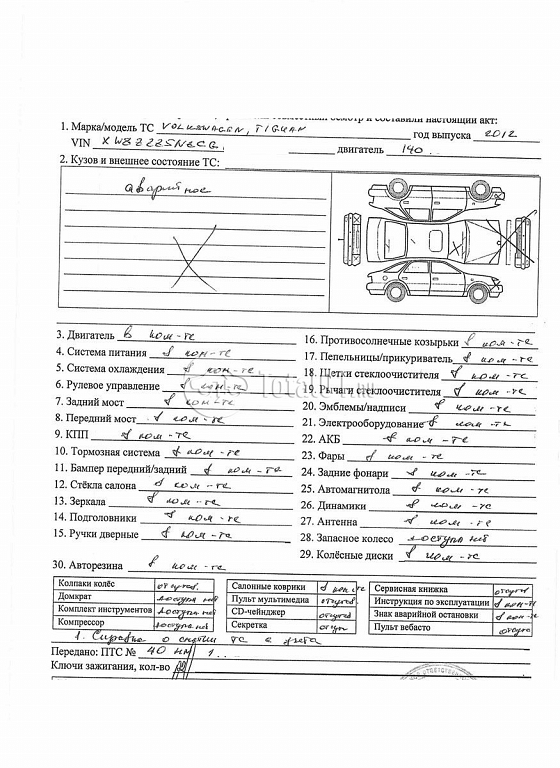 совместный осмотр и составили настоящий акт:
1. Марка/модель ТС VOLKSWAGEN, TIGUAN год выпуска 2012
VIN двигатель 140
2. Кузов и внешнее состояние ТС:
аварийное
3. Двигатель в ком-те
4. Система питания в ком-те
5. Система охлаждения в ком-те
6. Рулевое управление в ком-те
7. Задний мост в ком-те
8. Передний мост в ком-те
9. КПП в ком-те
10. Тормозная система в ком-те
11. Бампер передний/задний в ком-те
12. Стёкла салона в ком-те
13. Зеркала в ком-те
14. Подголовники в ком-те
15. Ручки дверные в ком-те
16. Противосолнечные козырьки в ком-те
17. Пепельницы/прикуриватель в ком-те
18. Щетки стеклоочистителя в ком-те
19. Рычаги стеклоочистителя в ком-те
20. Эмблемы/надписи в ком-те
21. Электрооборудование в ком-те
22. АКБ в ком-те
23. Фары в ком-те
24. Задние фонари в ком-те
25. Автомагнитола в ком-те
26. Динамики в ком-те
27. Антенна в ком-те
28. Запасное колесо доступа нет
29. Колёсные диски в ком-те
30. Авторезина в ком-те
Колпаки колёс отсутств.
Домкрат доступа нет
Комплект инструментов доступа нет
Компрессор доступа нет
Салонные коврики в ком-те
Пульт мультимедиа отсутств.
CD-чейнджер отсутств.
Секретка отсут
Сервисная книжка отсутст
Инструкция по эксплуатации в ком-т
Знак аварийной остановки в ком-т
Пульт вебасто отсутств
1. Справка о снятии ТС с учета
Передано: ПТС № 40 НМ 1...
Ключи зажигания, кол-во